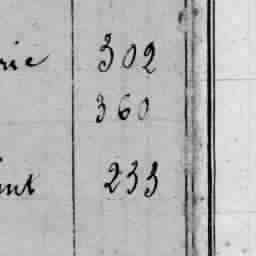 rie 302
360
ent 233